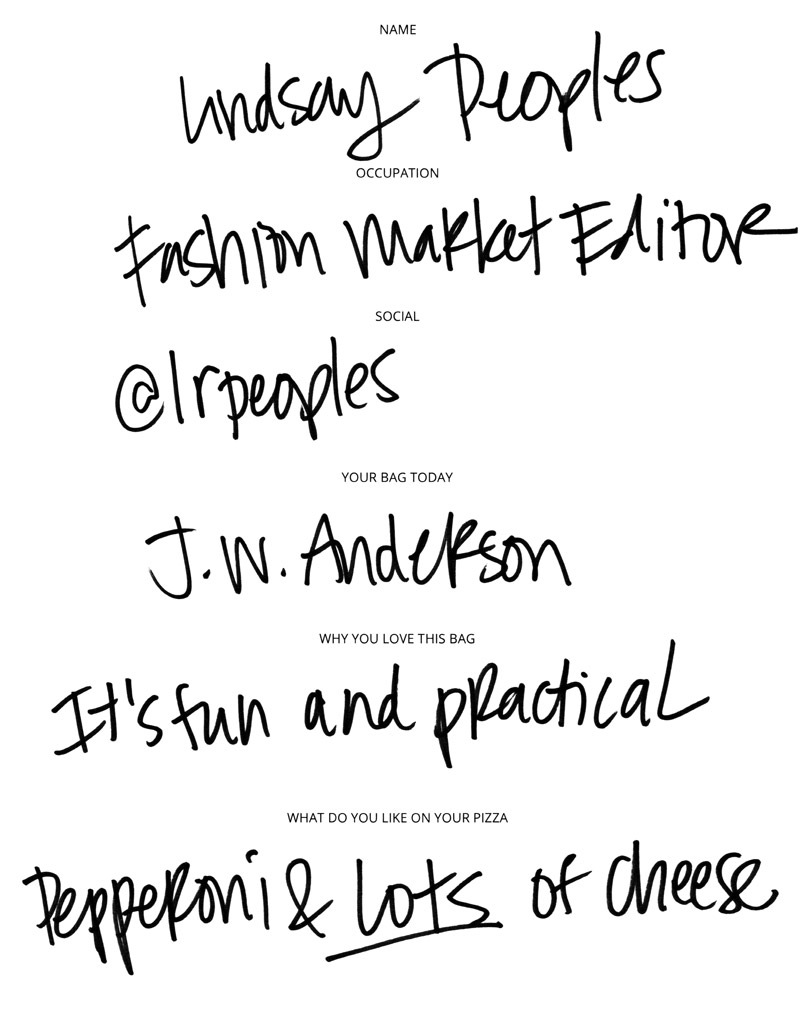 NAME
Lindsay Peoples
OCCUPATION
Fashion Market Editor
SOCIAL
@lrpeoples
YOUR BAG TODAY
J.W. Anderson
WHY YOU LOVE THIS BAG
It's fun and practical
WHAT DO YOU LIKE ON YOUR PIZZA
Pepperoni & lots of cheese